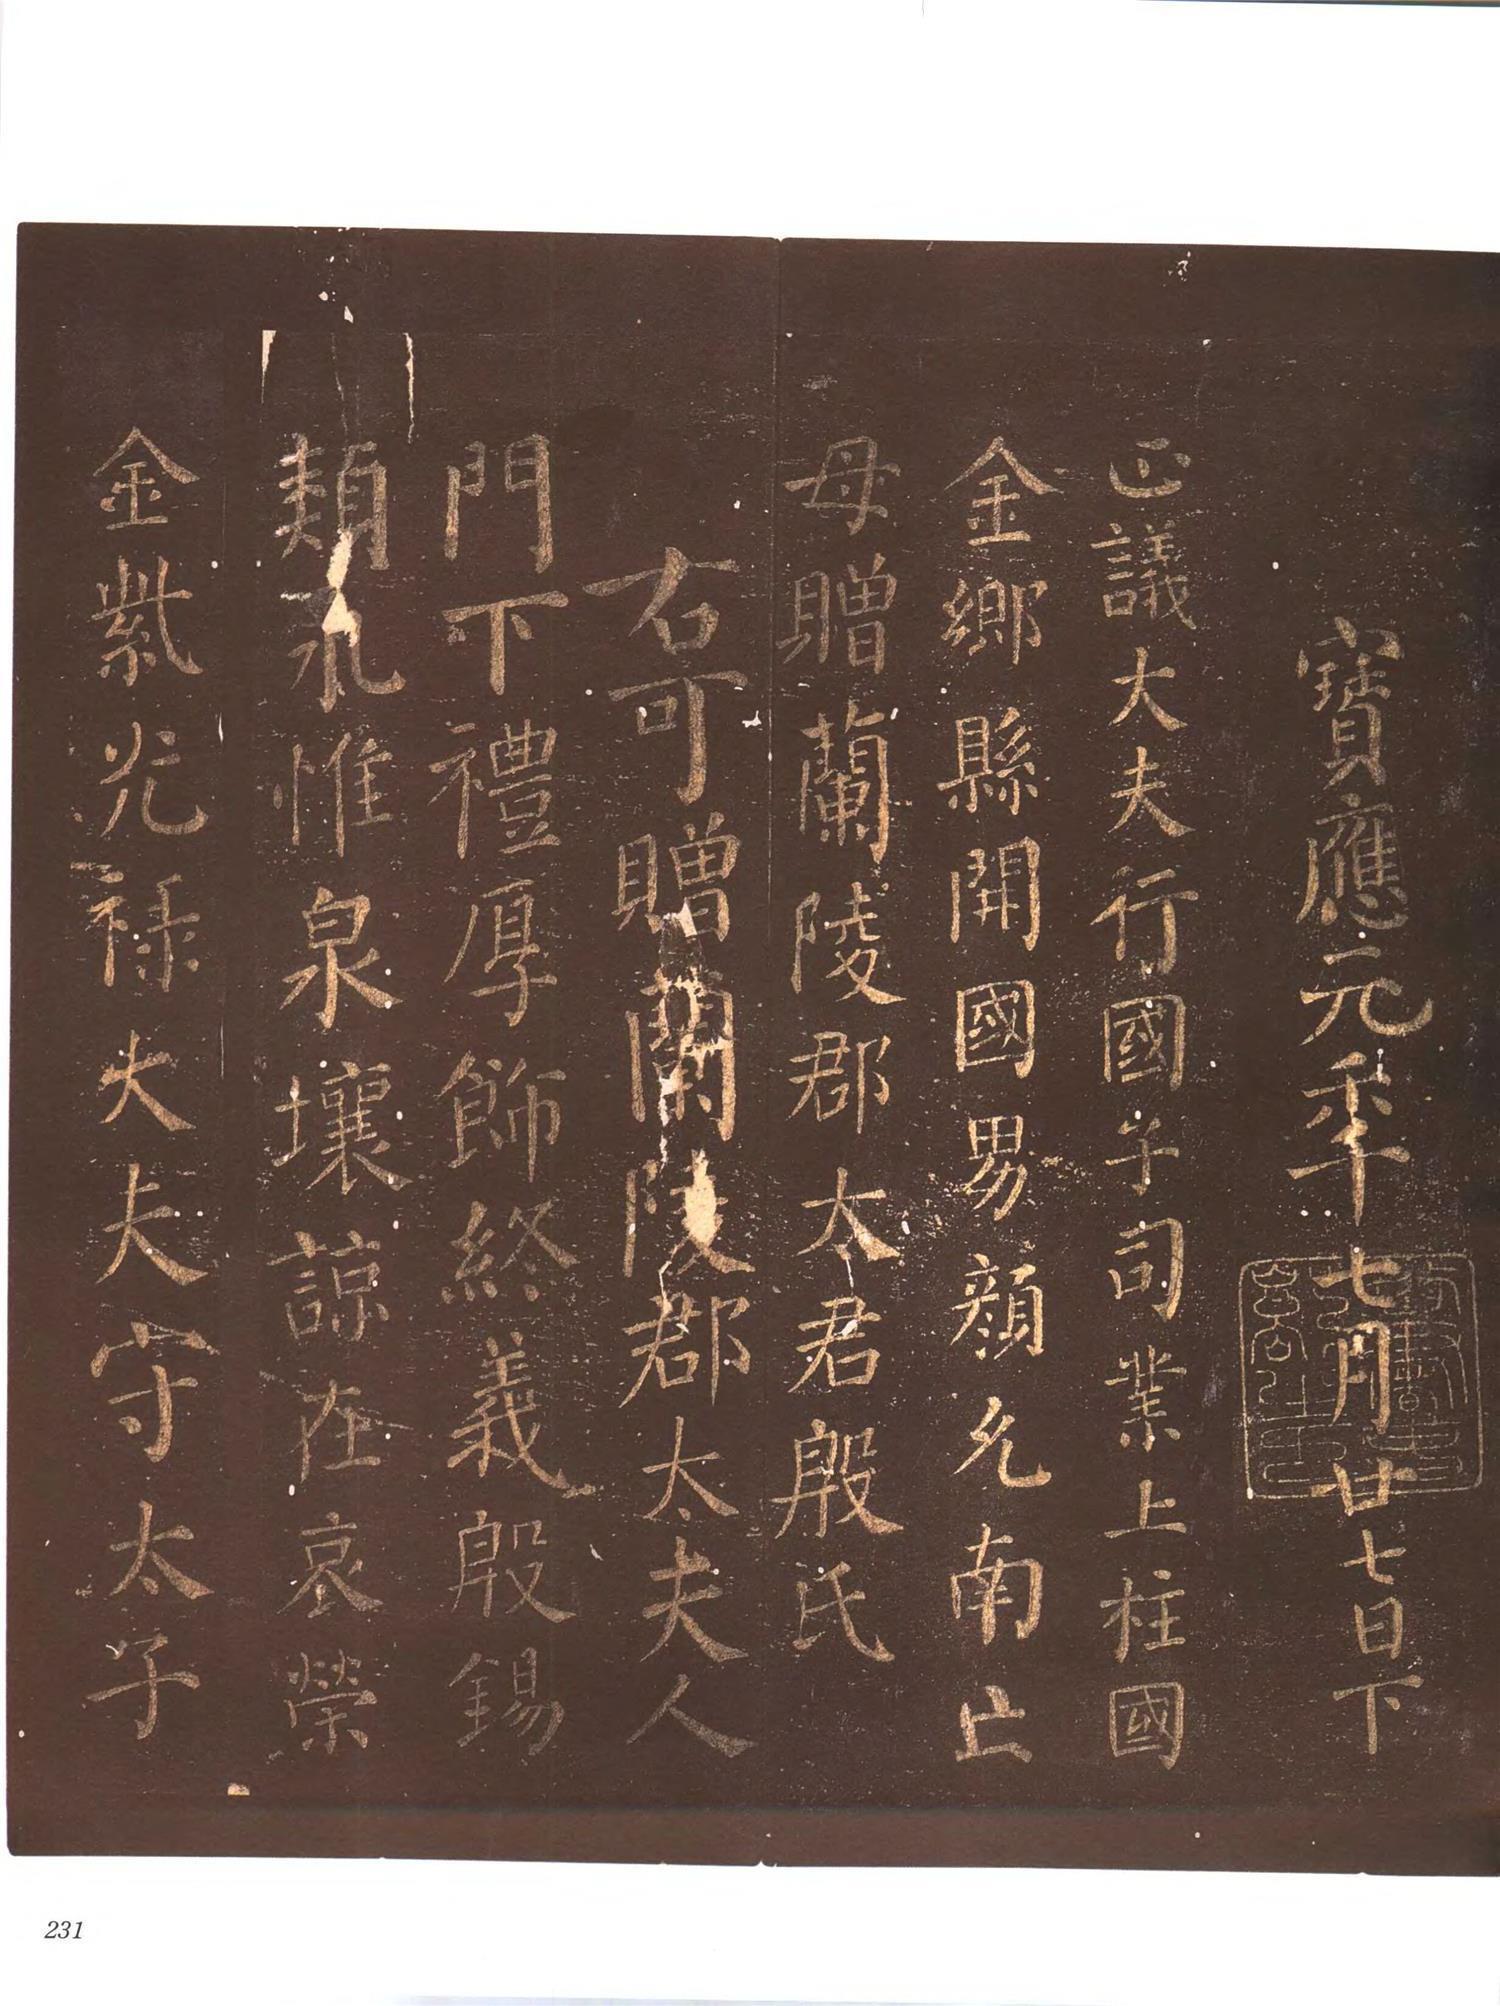 寶應元年七月廿七日下
正議大夫行國子司業上柱國
金鄉縣開國男顏允南亡
母贈蘭陵郡太君殷氏
右可贈蘭陵郡太夫人
門下禮厚飾終義殷錫
類永惟泉壤諒在哀榮
金紫光祿大夫守太子
231